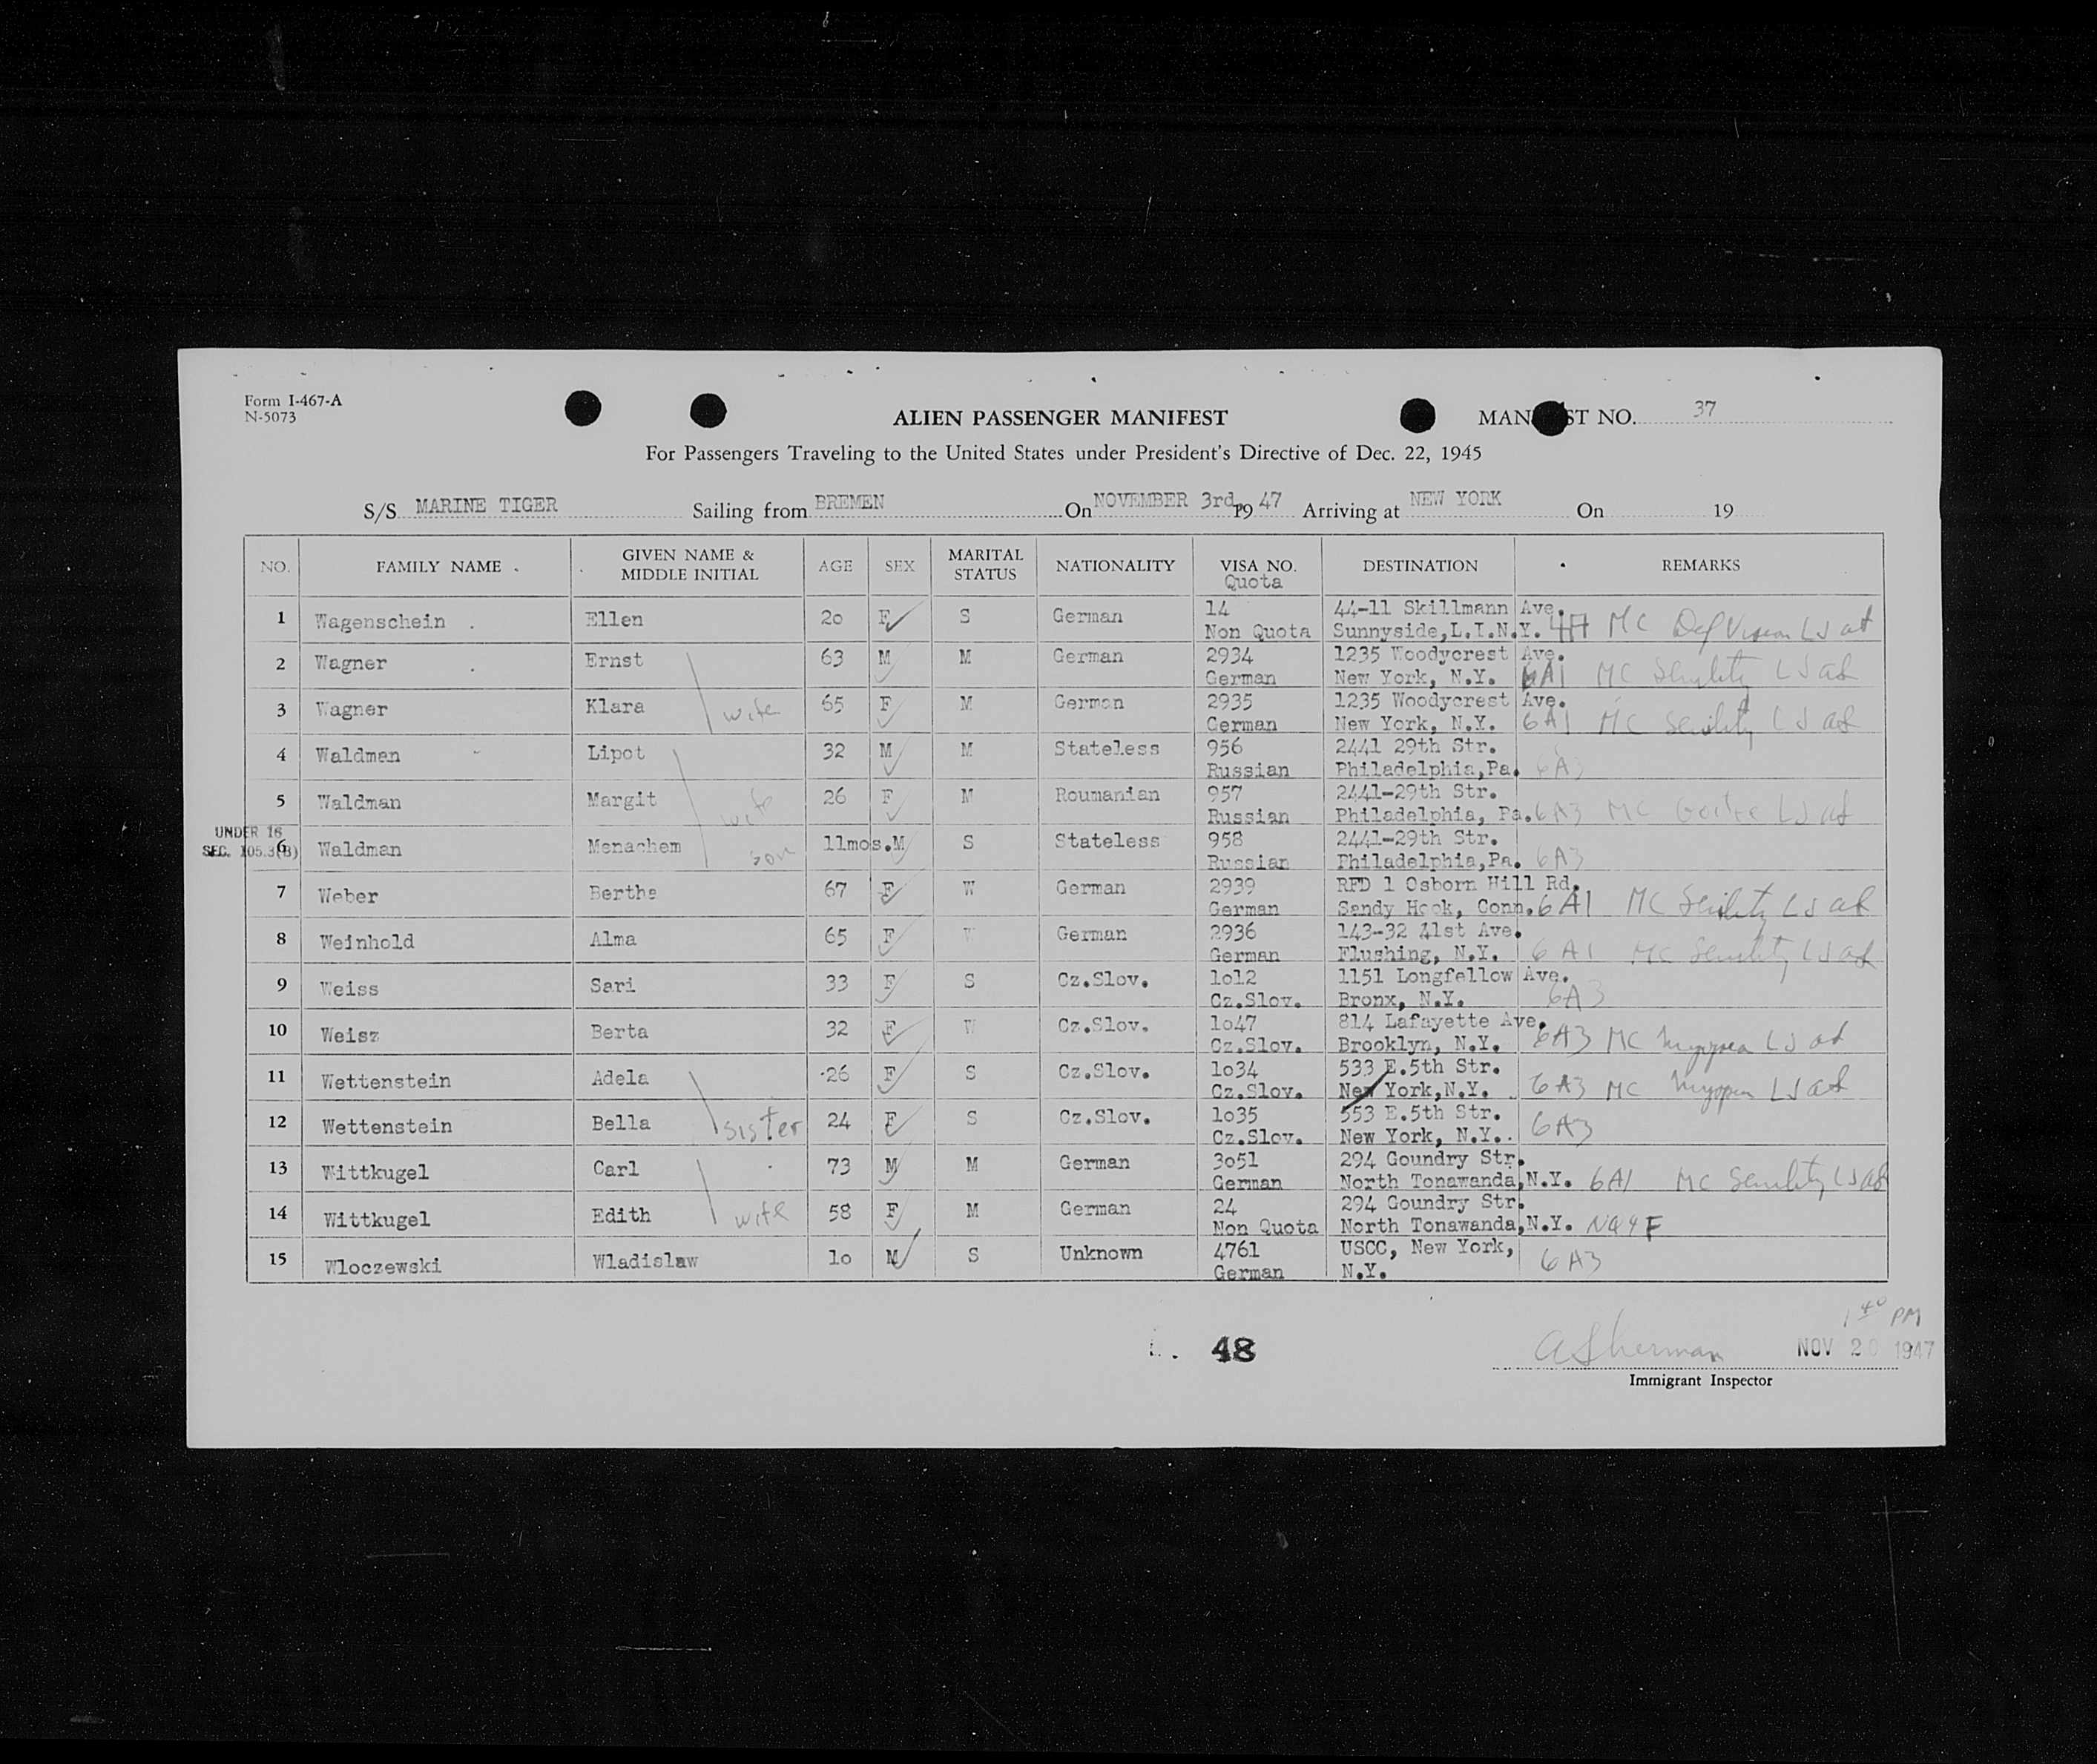 Form I-467-A
N-5073
ALIEN PASSENGER MANIFEST
MAN ST NO. 37
For Passengers Traveling to the United States under President's Directive of Dec. 22, 1945
S/S MARINE TIGER Sailing from BREMEN On NOVEMBER 3rd, 19 47 Arriving at NEW YORK On 19
NO. FAMILY NAME GIVEN NAME & MIDDLE INITIAL AGE SEX MARITAL STATUS NATIONALITY VISA NO. Quota DESTINATION REMARKS
1 Wagenschein Ellen 20 F S German 14 44-11 Skillmann Ave.
Non Quota Sunnyside,L.I.N.Y. MC Def Vision LJ at
2 Wagner Ernst 63 M M German 2934 1235 Woodycrest Ave.
German New York, N.Y. 6A1 MC Senility LJ at
3 Wagner Klara wife 65 F M German 2935 1235 Woodycrest Ave.
German New York, N.Y. 6A1 MC Senility LJ at
4 Waldman Lipot 32 M M Stateless 956 2441 29th Str.
Russian Philadelphia,Pa. 6A3
5 Waldman Margit wife 26 F M Roumanian 957 2441-29th Str.
Russian Philadelphia, Pa. 6A3 MC Goitre LJ at
UNDER 16
SEC. 105.3(B)
6 Waldman Menachem son 11mos. M S Stateless 958 2441-29th Str.
Russian Philadelphia,Pa. 6A3
7 Weber Bertha 67 F W German 2939 RFD 1 Osborn Hill Rd.
German Sandy Hook, Conn. 6A1 MC Senility LJ at
8 Weinhold Alma 65 F W German 2936 143-32 41st Ave.
German Flushing, N.Y. 6A1 MC Senility LJ at
9 Weiss Sari 33 F S Cz.Slov. 1o12 1151 Longfellow Ave.
Cz.Slov. Bronx, N.Y. 6A3
10 Weisz Berta 32 F W Cz.Slov. 1o47 814 Lafayette Ave.
Cz.Slov. Brooklyn, N.Y. 6A3 MC LJ at
11 Wettenstein Adela 26 F S Cz.Slov. 1o34 533 E.5th Str.
Cz.Slov. New York,N.Y. 6A3 MC LJ at
12 Wettenstein Bella sister 24 F S Cz.Slov. 1o35 553 E.5th Str.
Cz.Slov. New York, N.Y. 6A3
13 Wittkugel Carl 73 M M German 3o51 294 Goundry Str.
German North Tonawanda,N.Y. 6A1 MC Senility LJ at
14 Wittkugel Edith wife 58 F M German 24 294 Goundry Str.
Non Quota North Tonawanda,N.Y. NQ4F
15 Wloczewski Wladislaw 1o M S Unknown 4761 USCC, New York,
German N.Y. 6A3
1 40 PM
48 A Sherman NOV 20 1947
Immigrant Inspector